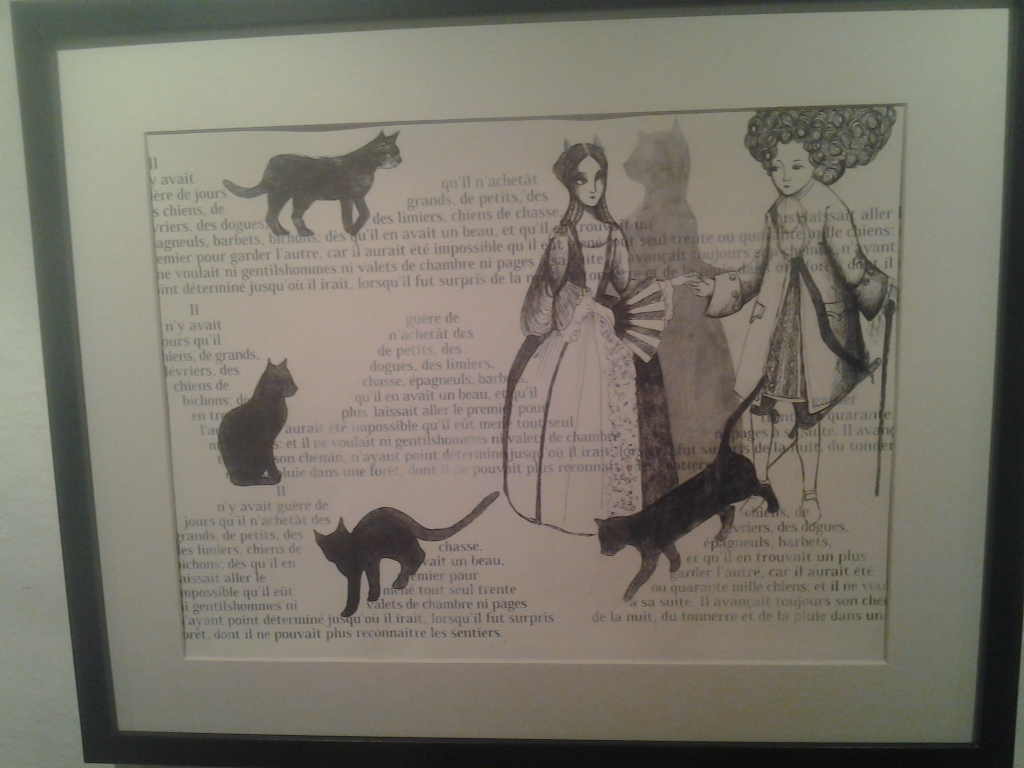 Il
y avait
ère de jours
s chiens, de
vriers, des dogues,
qu'il n'achetât
grands, de petits, des
des limiers, chiens de chasse,
agneuls, barbets, bichons; dès qu'il en avait un beau, et qu'il en trouvait un
plus laissait aller
emier pour garder l'autre, car il aurait été impossible qu'il eût mené tout seul trente ou quarante mille chiens;
ne voulait ni gentilshommes ni valets de chambre ni pages à sa suite. Il avançait toujours son chemin, n'ayant
int déterminé jusqu'où il irait, lorsqu'il fut surpris de la
tonnerre et de la
dans
dont il
Il
n'y avait
ours qu'il
hiens, de grands,
lévriers, des
chiens de
bichons; de
en
guère de
n'achetât des
de petits, des
dogues, des limiers,
chasse, épagneuls, barbets,
qu'il en avait un beau, et qu'il
plus laissait aller le premier pour
garder
aurait été impossible qu'il eût mené tout seul
quarante
et il ne voulait ni gentilshommes ni valets de chambre
pages à sa suite. Il avan
son chemin, n'ayant point déterminé jusqu'où il irait,
fut surpris de la nuit, du tonner
pluie dans une forêt, dont il ne pouvait plus reconnaî
les sentiers.
Il
n'y avait guère de
jours qu'il n'achetât des
rands, de petits, des
les limiers, chiens de
ichons; dès qu'il en
aissait aller le
mpossible qu'il eût
i gentilshommes ni
chasse,
vait un beau,
emier pour
mené tout seul trente
valets de chambre ni pages
'ayant point déterminé jusqu'où il irait, lorsqu'il fut surpris
orêt, dont il ne pouvait plus reconnaître les sentiers.
chiens, de
évriers, des dogues,
épagneuls, barbets,
et qu'il en trouvait un plus
garder l'autre, car il aurait été
ou quarante mille chiens; et il ne vou
à sa suite. Il avançait toujours son che
de la nuit, du tonnerre et de la pluie dans un